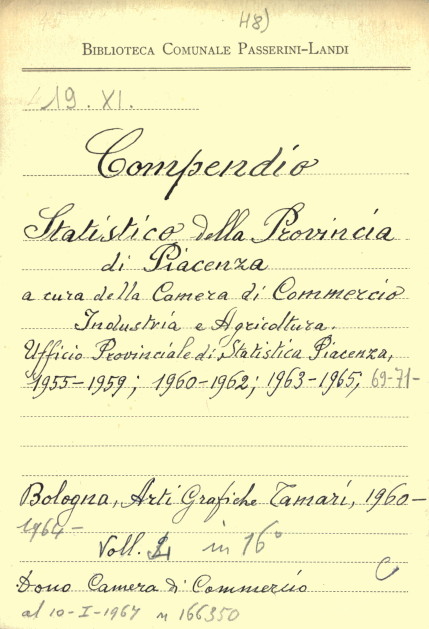 H8)
BIBLIOTECA COMUNALE PASSERINI-LANDI
19. XI.
Compendio
Statistico della Provincia
di Piacenza
a cura della Camera di Commercio
Industria e Agricoltura.
Ufficio Provinciale di Statistica Piacenza,
1955-1959; 1960-1962; 1963-1965; 69-71-
Bologna, Arti Grafiche Tamari, 1960-
1964-
Voll. in 16°
Dono Camera di Commercio
al 10-I-1967 n 166350